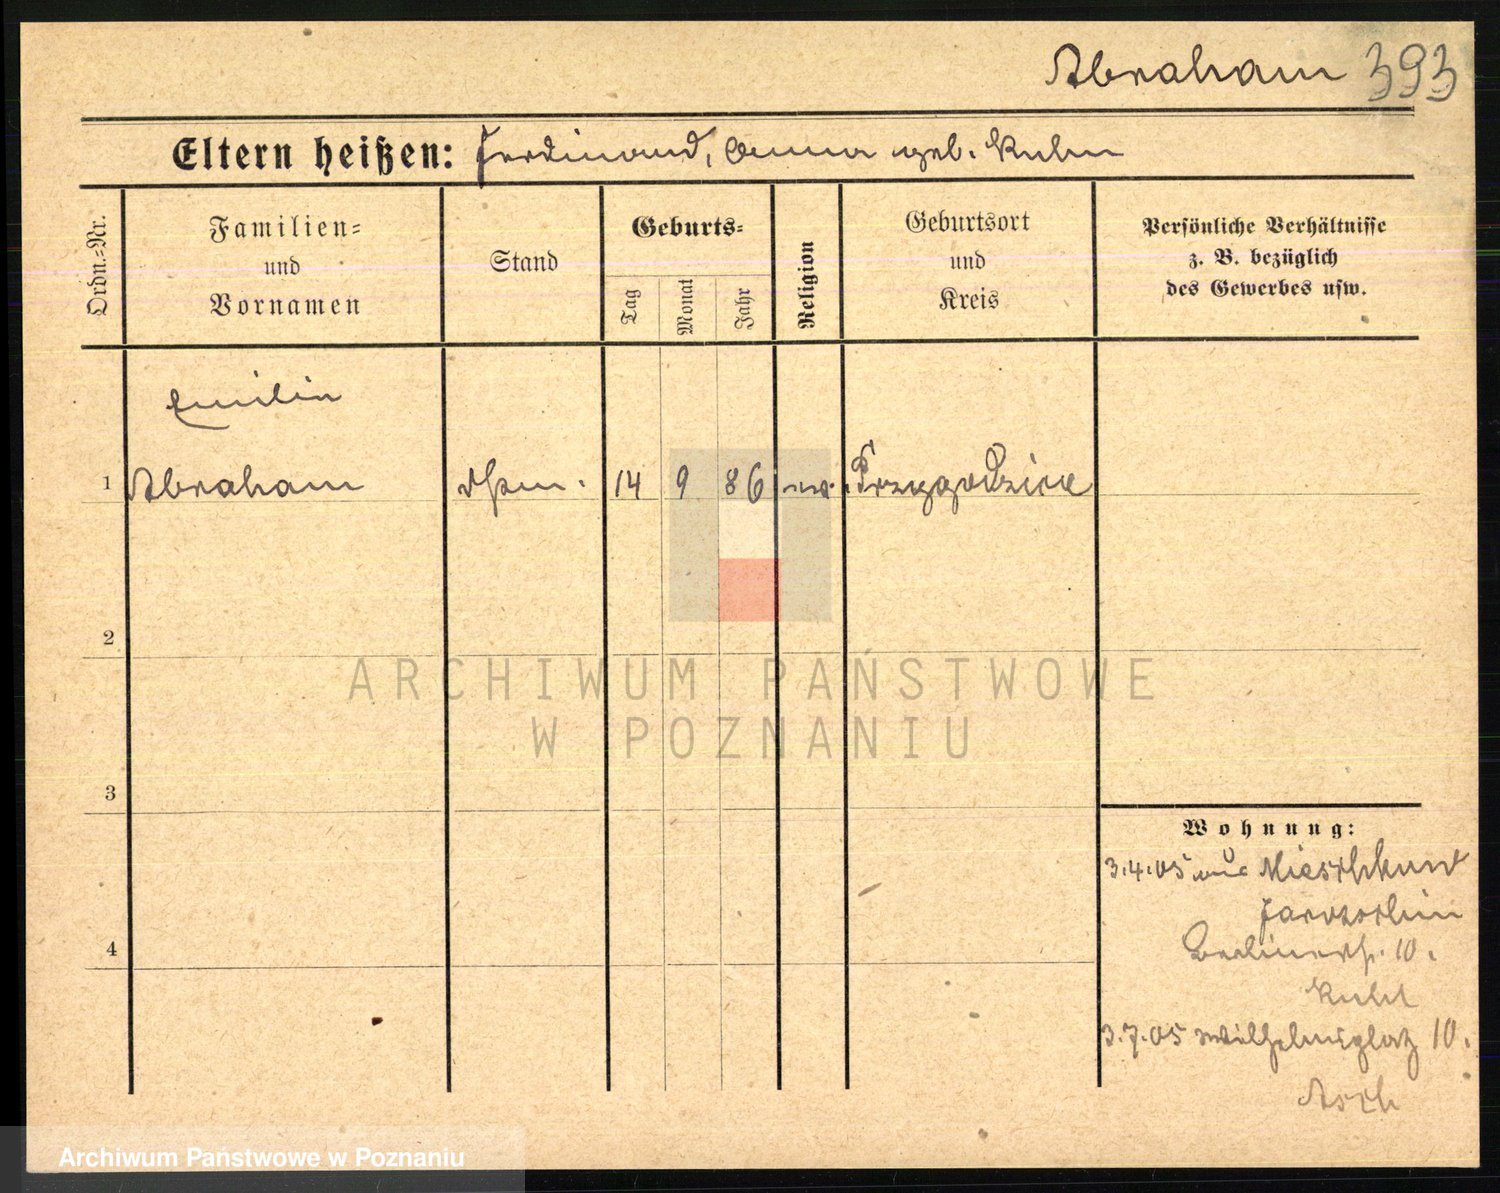 Abraham 393
Eltern heißen: Ferdinand, Anna geb. Kuhn
Ordn.-Nr.
Familien-
und
Vornamen
Stand
Geburts-
Tag
Monat
Jahr
Religion
Geburtsort
und
Kreis
Persönliche Verhältnisse
z. B. bezüglich
des Gewerbes usw.
Emilie
1 Abraham 14 9 86 ev. Przygodzice
2
3
4
Wohnung:
3.4.05 aus
Berlinerstr. 10.
3.7.05 Wilhelmsplatz 10.
Asch
ARCHIWUM PAŃSTWOWE
W POZNANIU
Archiwum Państwowe w Poznaniu